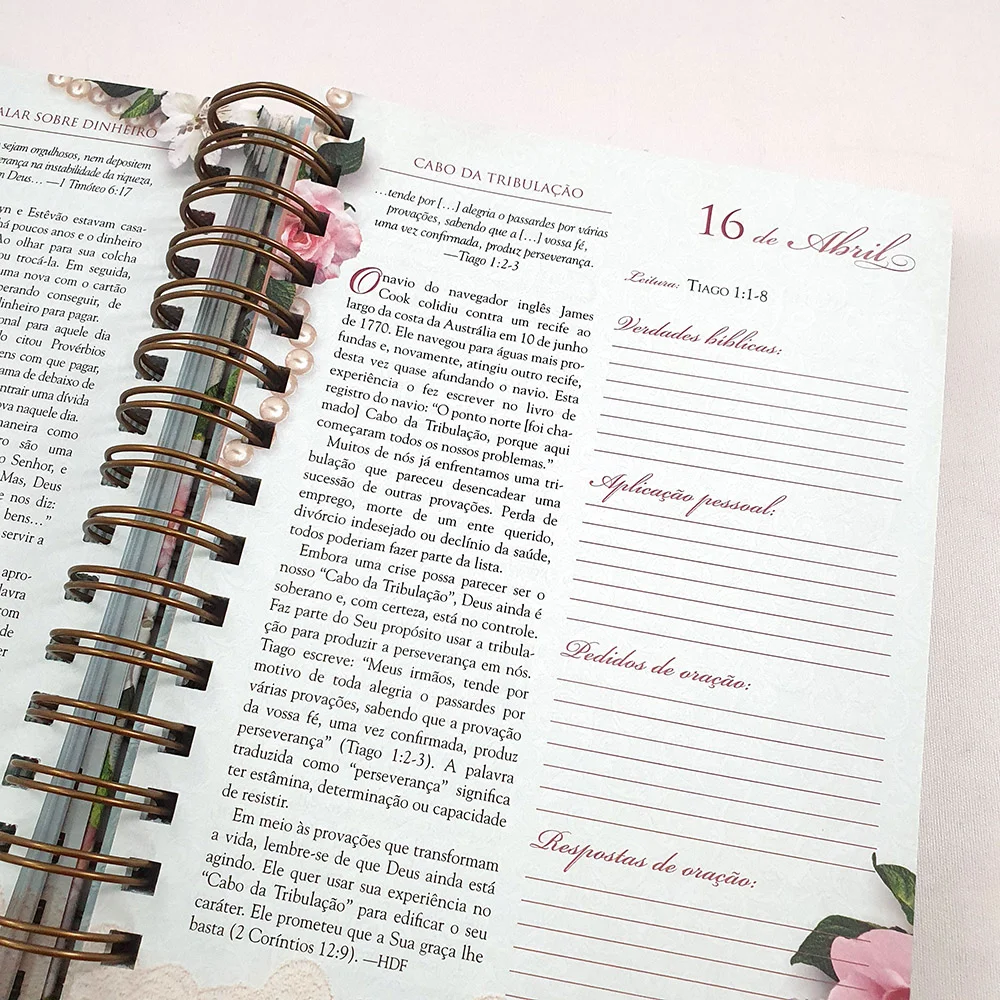 ALAR SOBRE DINHEIRO
sejam orgulhosos, nem depositem
erança na instabilidade da riqueza,
n Deus… —1 Timóteo 6:17
yn e Estêvão estavam casa-
há poucos anos e o dinheiro
Ao olhar para sua colcha
ou trocá-la. Em seguida,
uma nova com o cartão
perando conseguir, de
linheiro para pagar.
onal para aquele dia
o citou Provérbios
ens com que pagar,
ama de debaixo de
ntrair uma dívida
ova naquele dia.
maneira como
ro são uma
o Senhor, e
Mas, Deus
e nos diz:
bens…”
servir a
apro-
lavra
com
de
er
CABO DA TRIBULAÇÃO
…tende por […] alegria o passardes por várias
provações, sabendo que a […] vossa fé,
uma vez confirmada, produz perseverança.
—Tiago 1:2-3
O navio do navegador inglês James
Cook colidiu contra um recife ao
largo da costa da Austrália em 10 de junho
de 1770. Ele navegou para águas mais pro-
fundas e, novamente, atingiu outro recife,
desta vez quase afundando o navio. Esta
experiência o fez escrever no livro de
registro do navio: “O ponto norte [foi cha-
mado] Cabo da Tribulação, porque aqui
começaram todos os nossos problemas.”
Muitos de nós já enfrentamos uma tri-
bulação que pareceu desencadear uma
sucessão de outras provações. Perda de
emprego, morte de um ente querido,
divórcio indesejado ou declínio da saúde,
todos poderiam fazer parte da lista.
Embora uma crise possa parecer ser o
nosso “Cabo da Tribulação”, Deus ainda é
soberano e, com certeza, está no controle.
Faz parte do Seu propósito usar a tribula-
ção para produzir a perseverança em nós.
Tiago escreve: “Meus irmãos, tende por
motivo de toda alegria o passardes por
várias provações, sabendo que a provação
da vossa fé, uma vez confirmada, produz
perseverança” (Tiago 1:2-3). A palavra
traduzida como “perseverança” significa
ter estâmina, determinação ou capacidade
de resistir.
Em meio às provações que transformam
a vida, lembre-se de que Deus ainda está
agindo. Ele quer usar sua experiência no
“Cabo da Tribulação” para edificar o seu
caráter. Ele prometeu que a Sua graça lhe
basta (2 Coríntios 12:9). —HDF
16 de Abril
Leitura: TIAGO 1:1-8
Verdades bíblicas:
Aplicação pessoal:
Pedidos de oração:
Respostas de oração: